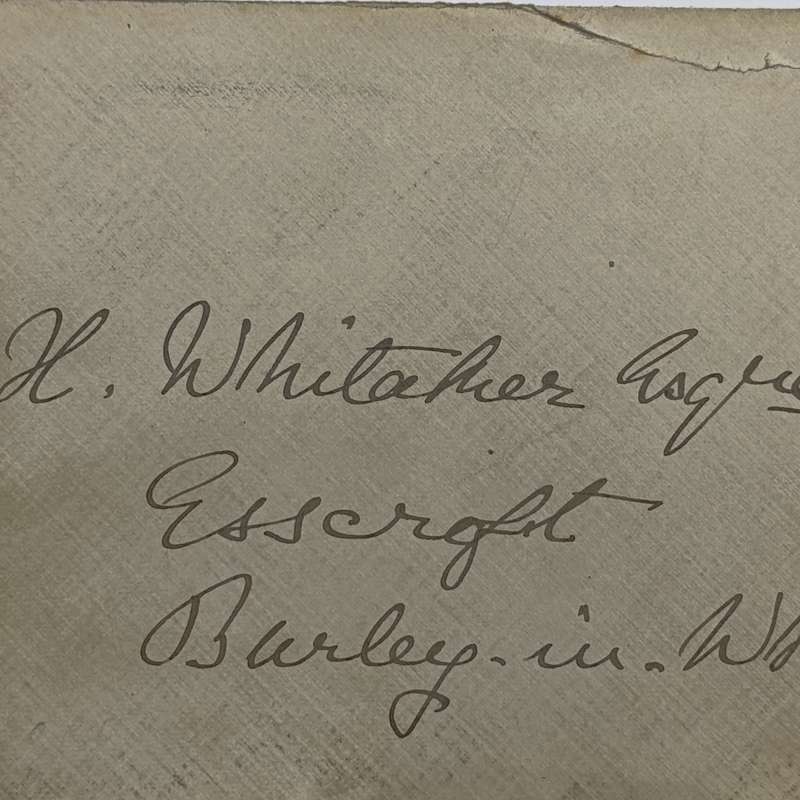 H. Whitaker Esqre
Esscroft
Burley-in-Wh